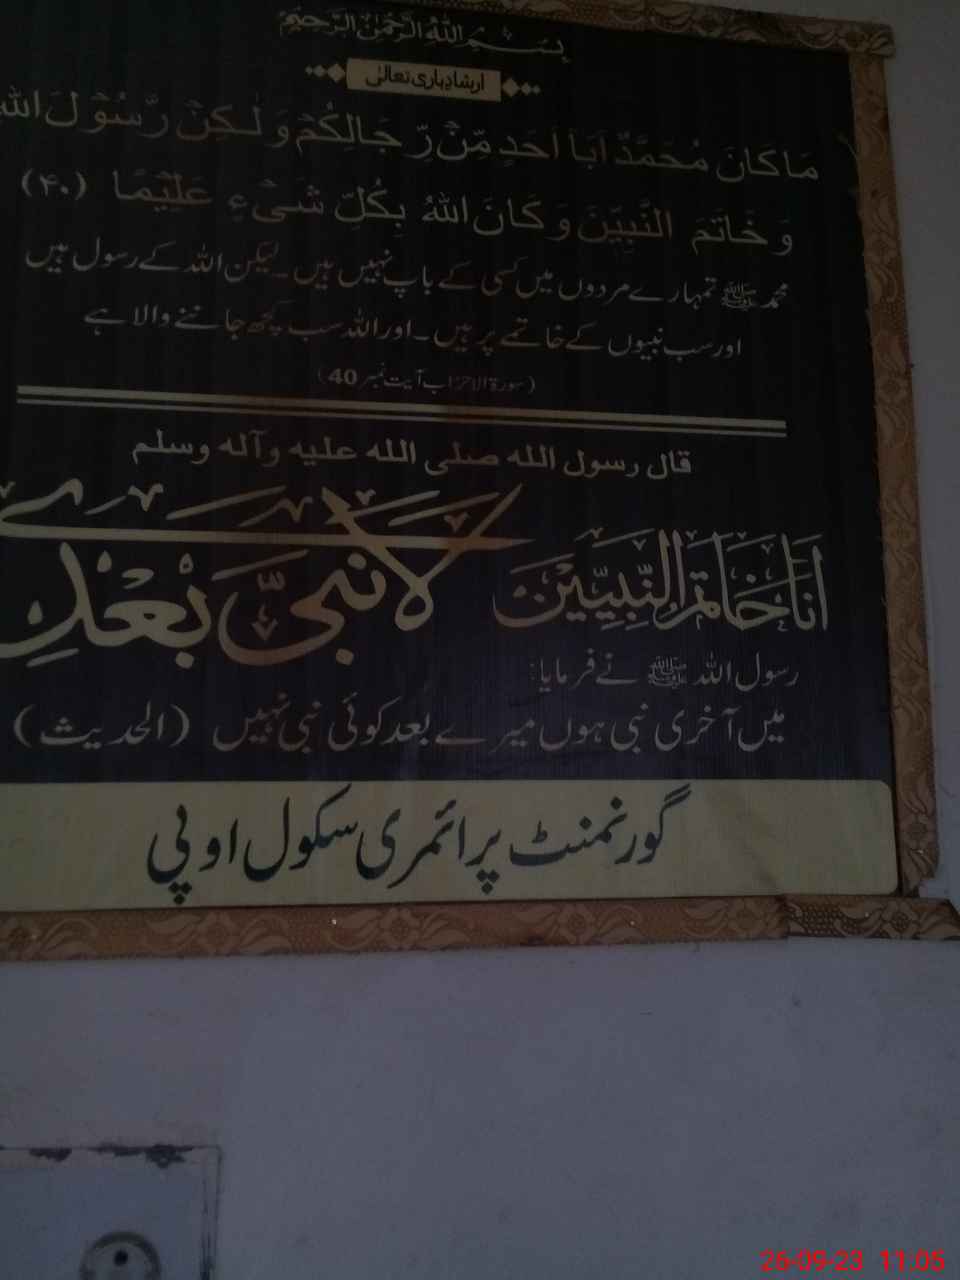 بِسْمِ اللهِ الرَّحْمٰنِ الرَّحِيْمِ
ارشاد باری تعالیٰ
مَا كَانَ مُحَمَّدٌ اَبَا اَحَدٍ مِّنْ رِّجَالِكُمْ وَلٰكِنْ رَّسُوْلَ الله
وَ خَاتَمَ النَّبِيّنَ وَ كَانَ اللهُ بِكُلِّ شَیْءٍ عَلِيْمًا (۴۰)
محمد ﷺ تمہارے مردوں میں کسی کے باپ نہیں ہیں۔ لیکن اللہ کے رسول ہیں
اور سب نبیوں کے خاتمے پر ہیں۔ اور اللہ سب کچھ جاننے والا ہے
(سورۃ الاحزاب آیت نمبر 40)
قال رسول الله صلى الله عليه وآله وسلم
اَنَا خَاتَمُ النَّبِيِّيْنَ لَا نَبِیَّ بَعْدِیْ
رسول اللہ ﷺ نے فرمایا:
میں آخری نبی ہوں میرے بعد کوئی نبی نہیں (الحدیث)
گورنمنٹ پرائمری سکول اوپی
26-09-23 11:05